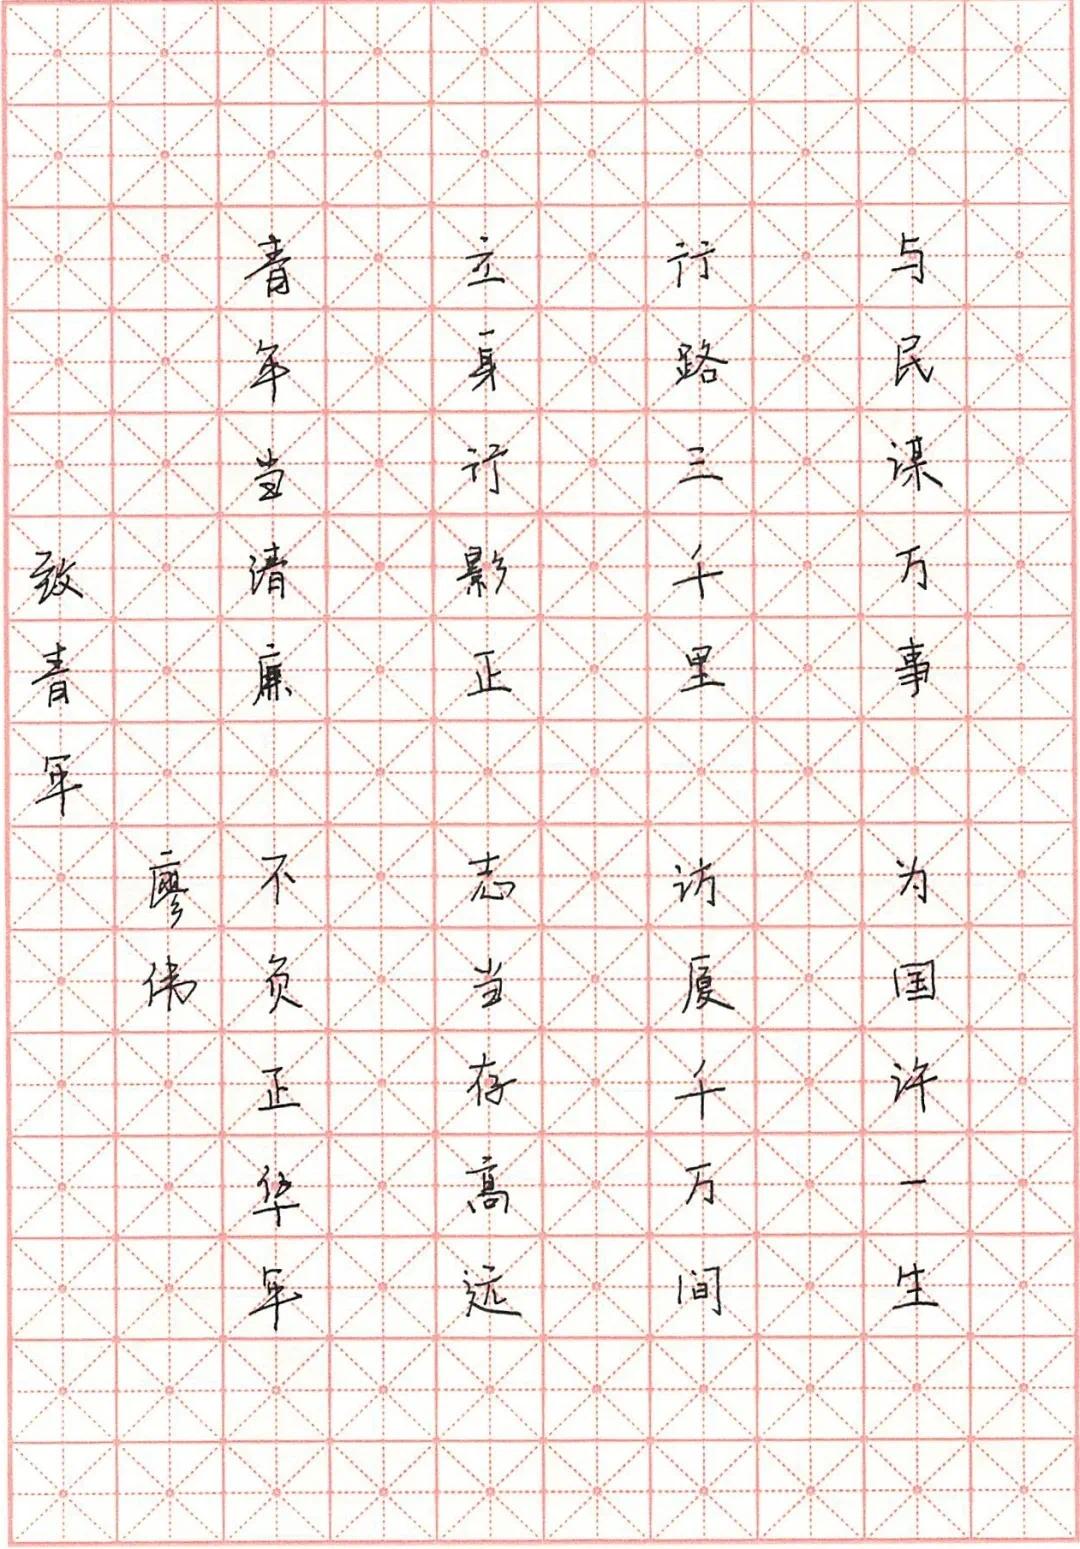 致青年
廖伟
青年当清廉 不负正华年
立身行影正 志当存高远
行路三千里 访厦千万间
与民谋万事 为国许一生